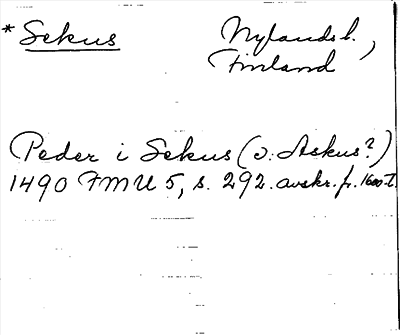 * Sekus
Nylands l.,
Finland
Peder i Sekus (o: Askus?)
1490 FMU 5, s. 292. avskr. fr. 1600-t.